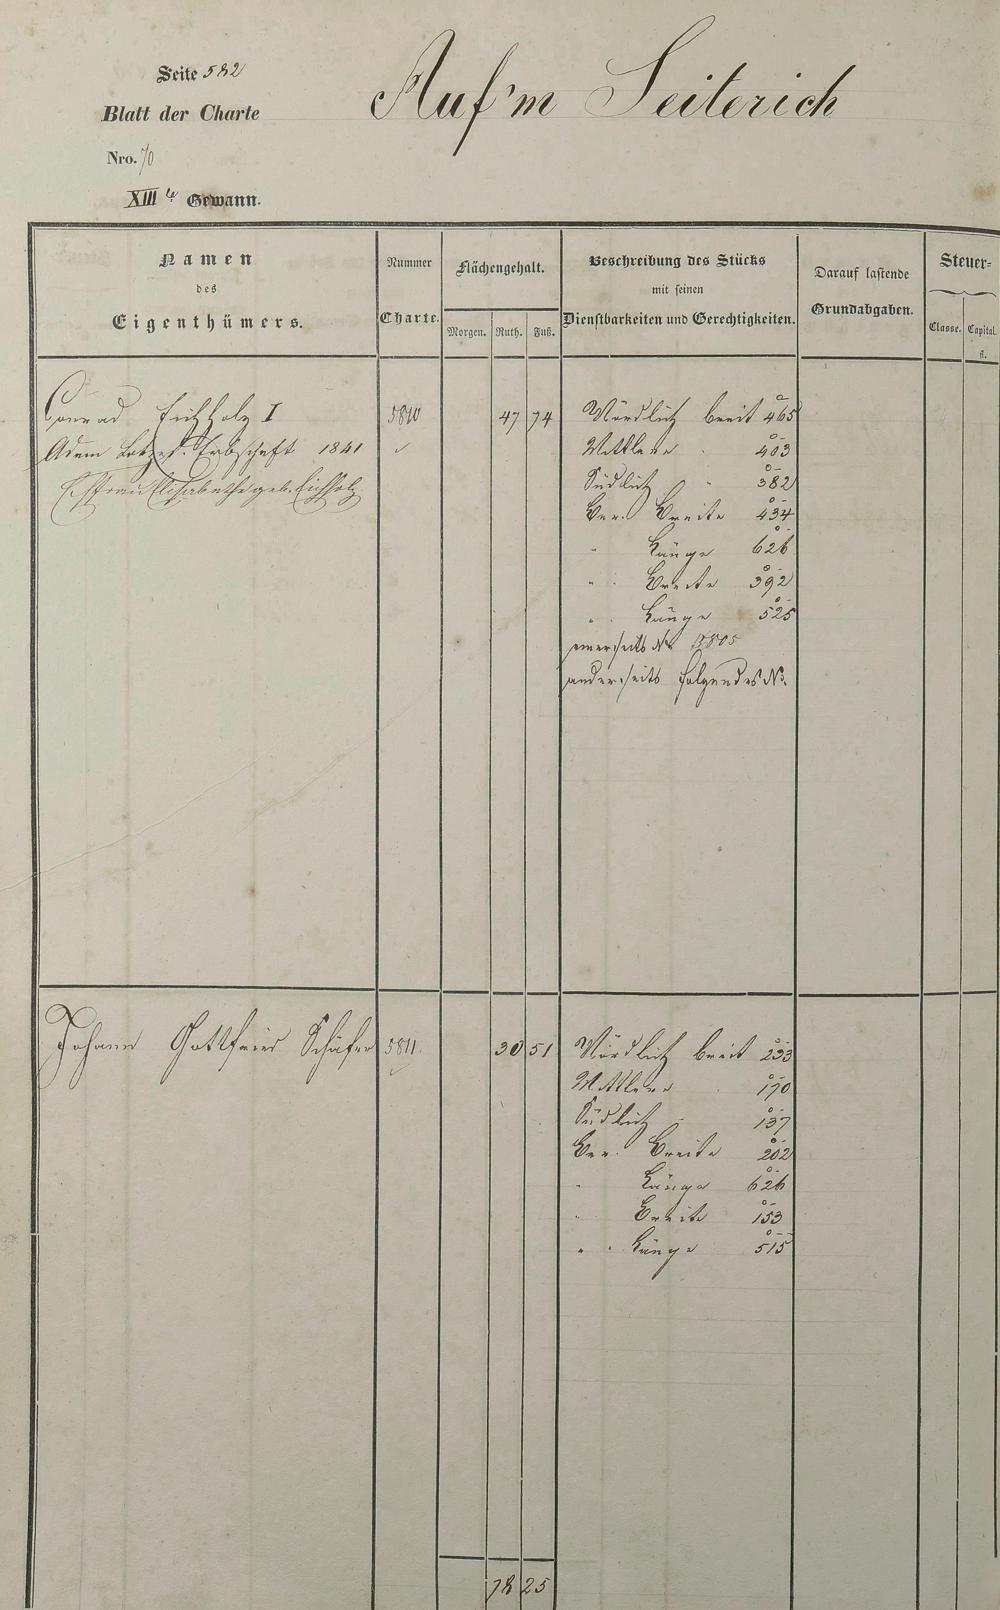 Seite 582
Auf'm Seiterich
Blatt der Charte
Nro. 70
XIII te Gewann.
Namen
des
Eigenthümers.
Nummer
Charte.
Flächengehalt.
Morgen. Ruth. Fuß.
Beschreibung des Stücks
mit seinen
Dienstbarkeiten und Gerechtigkeiten.
Darauf lastende
Grundabgaben.
Steuer-
Classe. Capital.
fl.
Conrad Eichholz I 5810 47 74 Nördlich breit 465
Adam Erbschaft 1841 Mittlere " 403
Ehefrau Elisabetha geb. Eichholz Südlich " 382
Ver. Breite 434
" Länge 626
" Breite 392
" Länge 525
einerseits No 5805
anderseits folgendes No.
Johann Gottfried Schäfer 5811 30 51 Nördlich breit 233
Mittlere 170
Südlich - 137
Ver. Breite 202
" Länge 626
" Breite 153
" " Länge 515
78 25